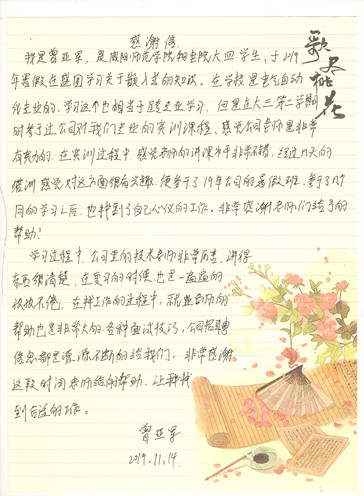 感谢信
我是曾亚军，是咸阳师范学院物电院大四学生，于2019
年暑假在盛图学习关于嵌入式的知识。在学校是电气自动
化专业的，学习这个也相当于跨专业学习，但是在大三第二学期
时参予过公司对我们专业的实训课程，感觉公司老师是非常
有实力的，在实训过程中，感觉老师的讲课水平非常不错，经过几天的
培训，感觉对这方面很有兴趣，便参于了19年公司的暑假班，参于了几个
月的学习之后，也找到了自己心仪的工作。非常感谢老师们给予的
帮助！
学习过程中，公司里的技术老师非常厉害，讲得
东西很清楚，在复习的时候也是一遍遍的
孜孜不倦，在找工作的过程中，就业老师的
帮助也是非常大的，各种面试技巧，公司招聘
信息都是源源不断的给我们，非常感谢
这段时间老师给的帮助，让我找
到合适的工作。
曾亚军
2019.11.14
桃花